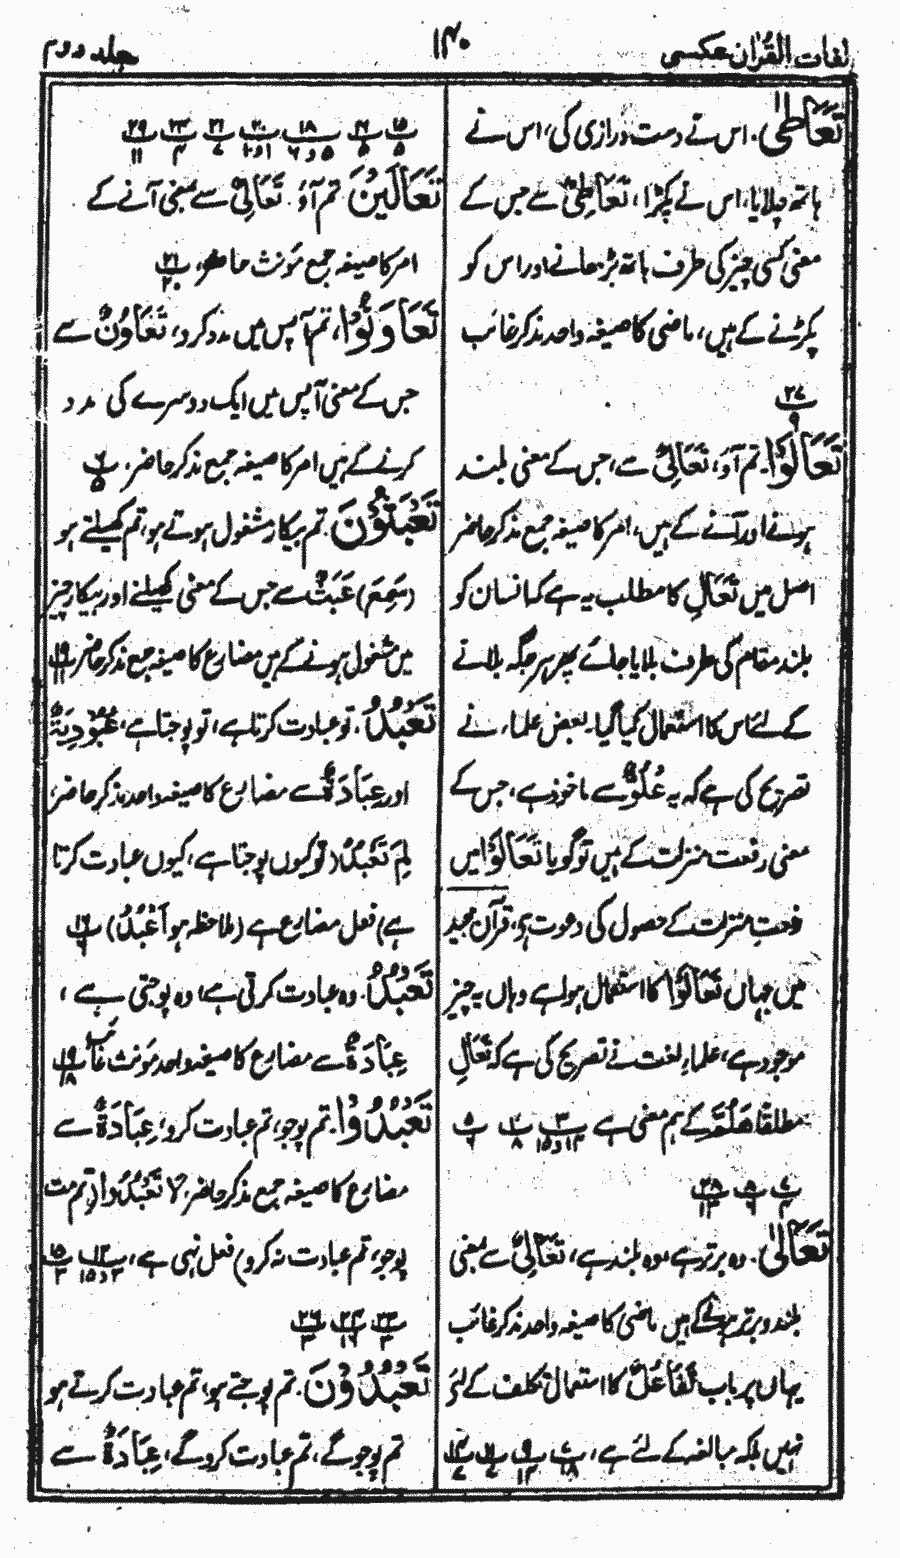 لغات القرآن عکسی
۱۴۰
جلد دوم
تَعَاطٰی۔ اس نے دست درازی کی، اس نے
ہاتھ چلایا، اس نے پکڑا، تَعَاطِیٌ سے جس کے
معنی کسی چیز کی طرف ہاتھ بڑھانے اور اس کو
پکڑنے کے ہیں، ماضی کا صیغہ واحد مذکر غائب
۲۷
۹
تَعَالَوْا۔ تم آؤ، تَعَالِیٌ سے، جس کے معنی بلند
ہونے اور آنے کے ہیں، امر کا صیغہ جمع مذکر حاضر
اصل میں تَعَالِ کا مطلب یہ ہے کہ انسان کو
بلند مقام کی طرف بلایا جائے پھر ہر جگہ بلانے
کے لئے اس کا استعمال کیا گیا۔ بعض علماء نے
تصریح کی ہے کہ یہ عُلُوٌّ سے ماخوذ ہے، جس کے
معنی رفعت منزلت کے ہیں تو گویا تَعَالَوْا میں
رفعتِ منزلت کے حصول کی دعوت ہے، قرآن مجید
میں جہاں تَعَالَوْا کا استعمال ہوا ہے وہاں یہ چیز
موجود ہے، علماءِ لغت نے تصریح کی ہے کہ تَعَالِ
مطلقًا هَلُمَّ کے ہم معنی ہے
تَعَالٰی۔ وہ برتر ہے، وہ بلند ہے، تَعَالِیٌ سے بمعنی
بلند و برتر ہونے کے ہیں ماضی کا صیغہ واحد مذکر غائب
یہاں پر باب تَفَاعُلٌ کا استعمال تکلف کے لئے
نہیں بلکہ مبالغہ کے لئے ہے،
تَعَالَیْنَ۔ تم آؤ، تَعَالِیٌ سے بمعنی آنے کے
امر کا صیغہ جمع مؤنث حاضر،
۲۱
۲۰
تَعَاوَنُوْا، تم آپس میں مدد کرو، تَعَاوُنٌ سے
جس کے معنی آپس میں ایک دوسرے کی مدد
کرنے کے ہیں امر کا صیغہ جمع مذکر حاضر،
۶
۵
تَعْبَثُوْنَ۔ تم بیکار مشغول ہوتے ہو، تم کھیلتے ہو
(سَمِعَ) عَبَثٌ سے جس کے معنی کھیلنے اور بیکار چیز
میں مشغول ہونے کے ہیں مضارع کا صیغہ جمع مذکر حاضر
۱۹
۱۱
تَعْبُدُ۔ تو عبادت کرتا ہے، تو پوجتا ہے، عُبُوْدِیَّةٌ
اور عِبَادَةٌ سے مضارع کا صیغہ واحد مذکر حاضر،
لِمَ تَعْبُدُ (تو کیوں پوجتا ہے، کیوں عبادت کرتا
ہے) فعل مضارع ہے (ملاحظہ ہو اَعْبُدُ)
۱۶
۶
تَعْبُدُ۔ وہ عبادت کرتی ہے، وہ پوجتی ہے،
عِبَادَةٌ سے مضارع کا صیغہ واحد مؤنث غائب
۱۹
۱۸
تَعْبُدُوْا۔ تم پوجو، تم عبادت کرو، عِبَادَةٌ سے
مضارع کا صیغہ جمع مذکر حاضر، لَا تَعْبُدُوا (تم مت
پوجو، تم عبادت نہ کرو) فعل نہی ہے،
تَعْبُدُوْنَ۔ تم پوجتے ہو، تم عبادت کرتے ہو
تم پوجو گے، تم عبادت کرو گے، عِبَادَةٌ سے